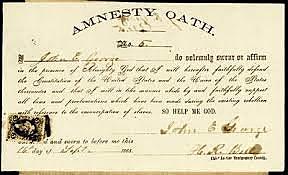 AMNESTY OATH.
No. 5
I John E. George do solemnly swear or affirm
in the presence of Almighty God that I will hereafter faithfully defend
the Constitution of the United States and the Union of the States
thereunder and that I will in like manner abide by and faithfully support
all laws and proclamations which have been made during the existing rebellion
with reference to the emancipation of slaves. SO HELP ME GOD.
John E George
and sworn to before me this
day of Sept 1865.
Montgomery County.